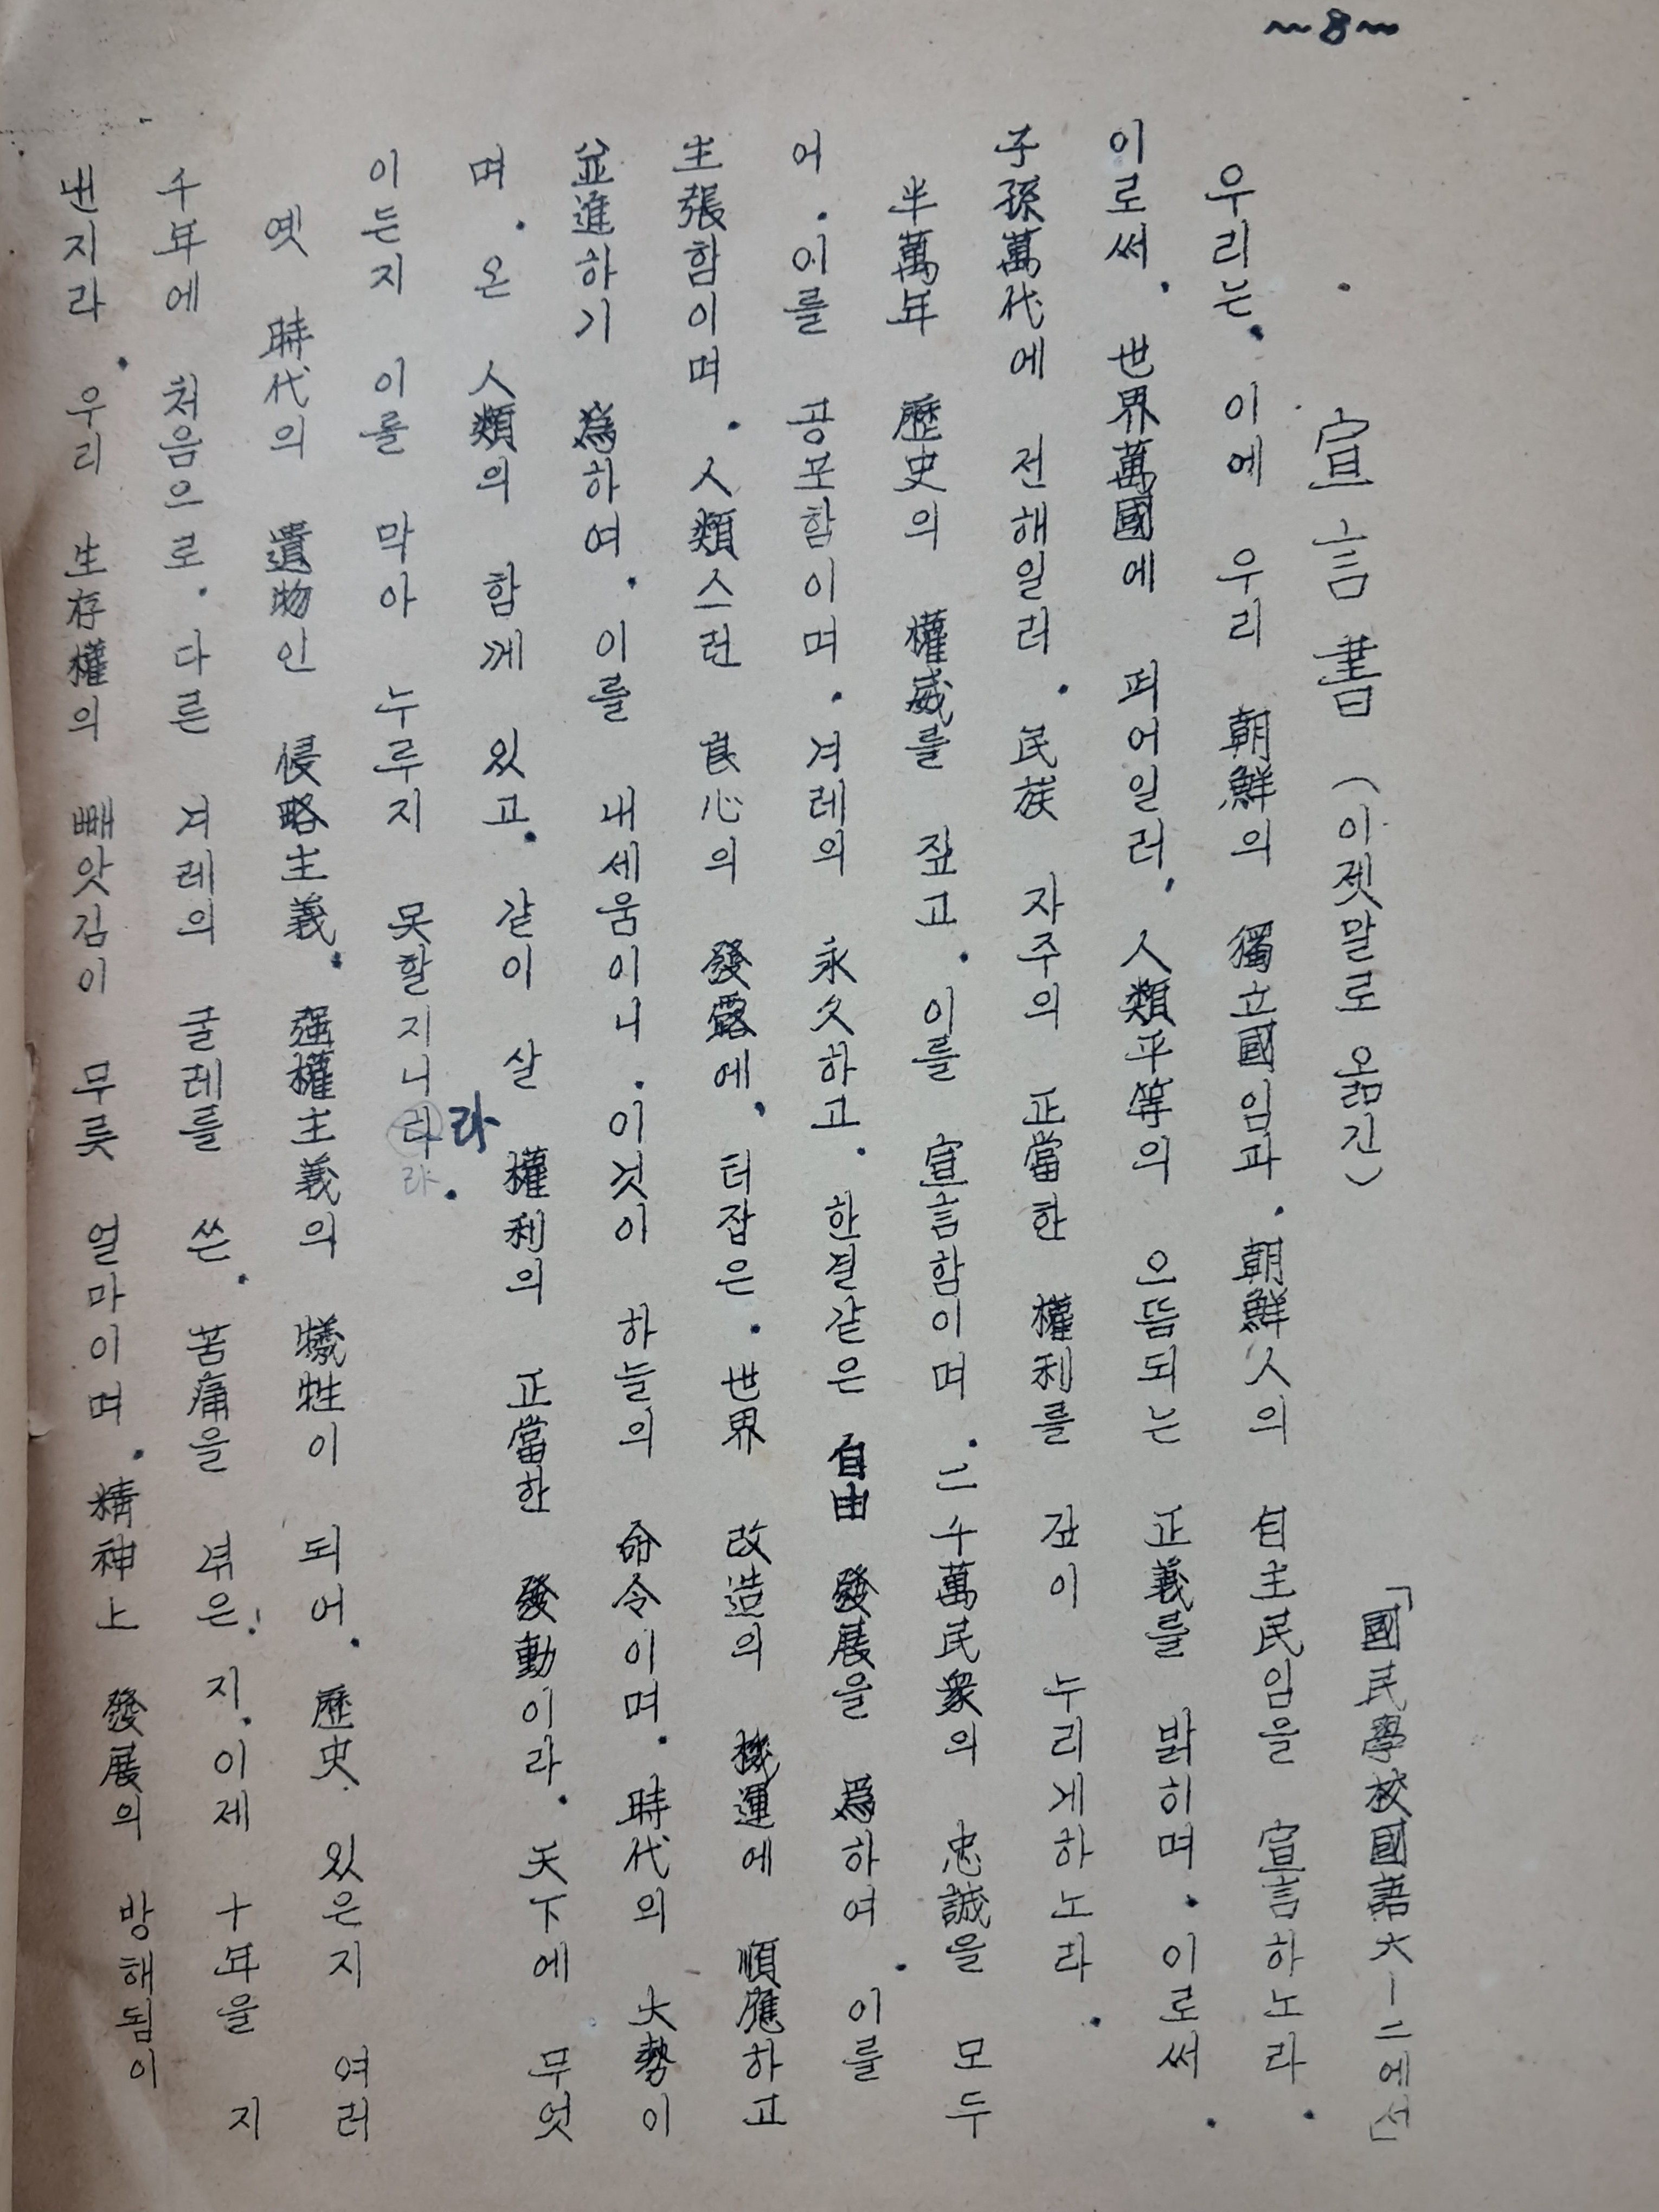 ~8~
宣言書 (이젯말로 옮긴)
「國民學校國語六—二에서」
우리는. 이에 우리 朝鮮의 獨立國임과. 朝鮮人의 自主民임을 宣言하노라.
이로써. 世界萬國에 펴어일러. 人類平等의 으뜸되는 正義를 밝히며. 이로써.
子孫萬代에 전해일러. 民族 자주의 正當한 權利를 깊이 누리게하노라.
半萬年 歷史의 權威를 짚고. 이를 宣言함이며. 二千萬民衆의 忠誠을 모두
어. 이를 공포함이며. 겨레의 永久하고. 한결같은 自由 發展을 爲하여. 이를
主張함이며. 人類스런 良心의 發露에. 터잡은. 世界 改造의 機運에 順應하고
並進하기 爲하여. 이를 내세움이니. 이것이 하늘의 命令이며. 時代의 大勢이
며. 온 人類의 함께 있고. 같이 살 權利의 正當한 發動이라. 天下에 무엇
이든지 이를 막아 누루지 못할지니라.
옛 時代의 遺物인 侵略主義. 强權主義의 犧牲이 되어. 歷史. 있은지 여러
千年에 처음으로. 다른 겨레의 굴레를 쓴. 苦痛을 겪은. 지. 이제 十年을 지
낸지라. 우리 生存權의 빼앗김이 무릇 얼마이며. 精神上 發展의 방해됨이